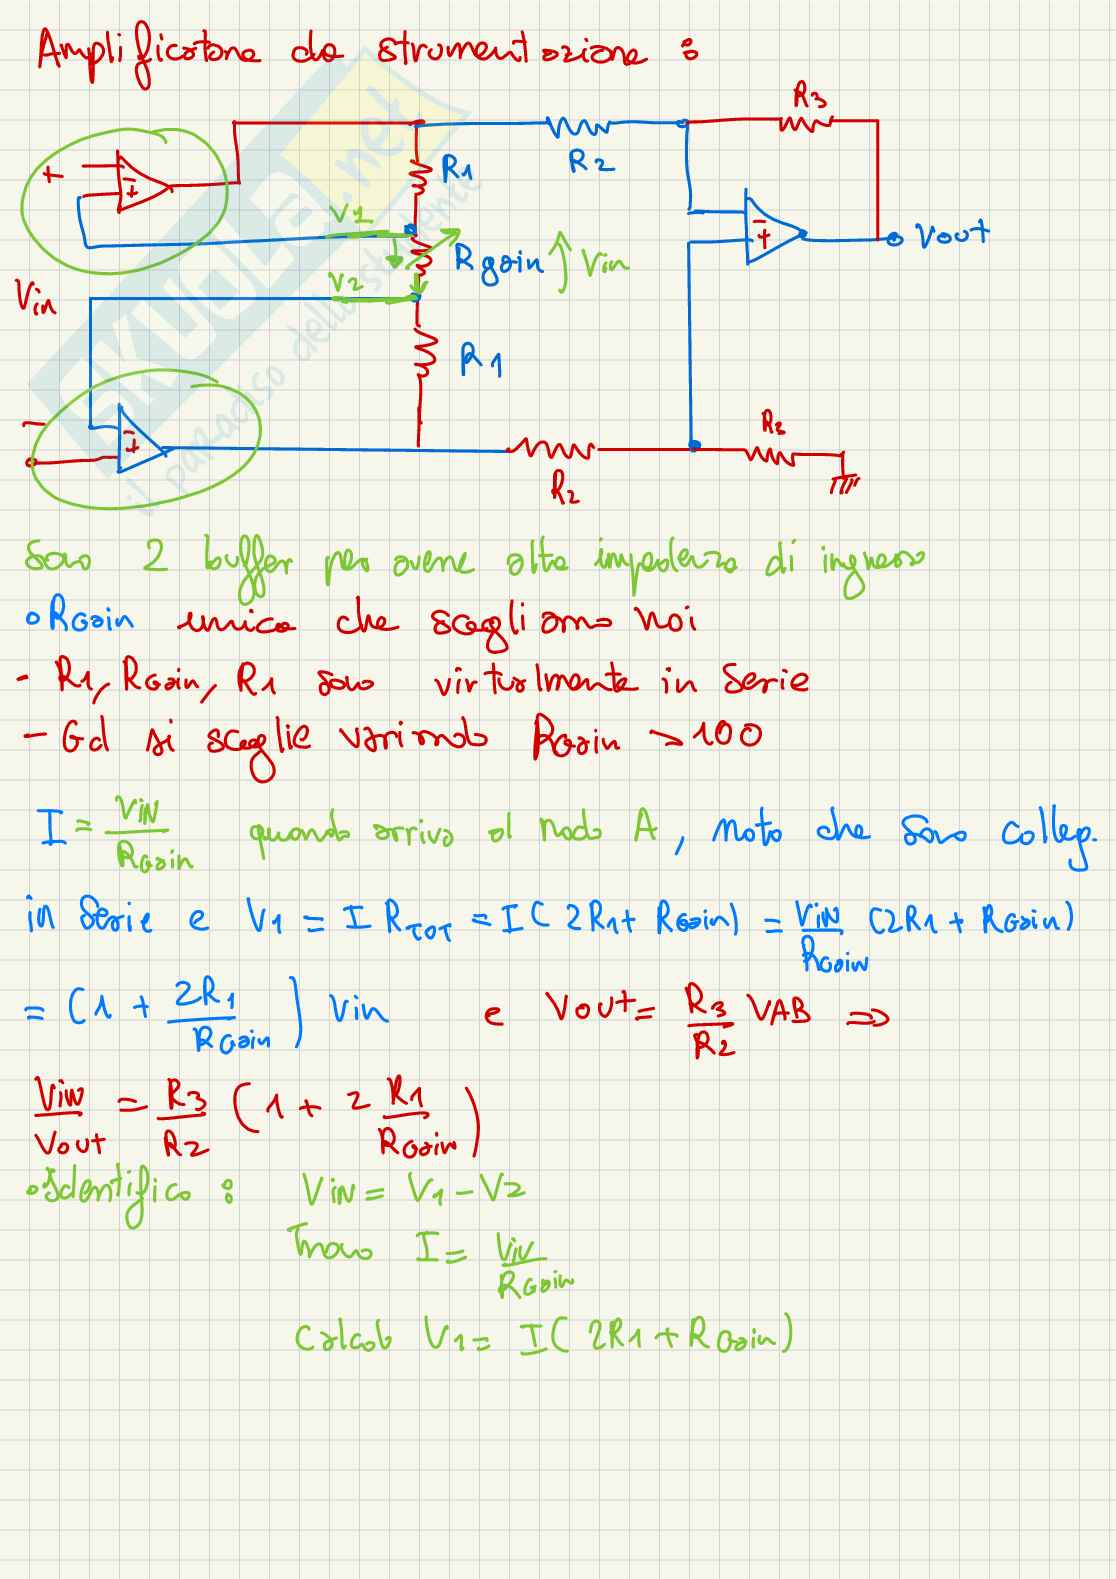 Amplificatore da strumentazione :
R3
R2
R1
+
-
+
V1
Rgain
Vin
-
+
Vout
V2
Vin
R1
R2
-
-
+
R2
SKUOLA.net
il paradiso dello studente
Sono 2 buffer per avere alta impedenza di ingresso
• RGain unica che scegliamo noi
- R1, RGain, R1 sono virtualmente in serie
- Gd si sceglie variando RGain → 100
I = VIN / RGain quando arriva al nodo A, noto che sono colleg.
in serie e V1 = I RTOT = I ( 2R1 + RGain) = VIN / RGain (2R1 + RGain)
= (1 + 2R1 / RGain) Vin e Vout = R3 / R2 VAB ⇒
Vin / Vout = R3 / R2 (1 + 2 R1 / RGain)
• Identifico : Vin = V1 - V2
Trovo I = Vin / RGain
Calcolo V1 = I ( 2R1 + RGain)